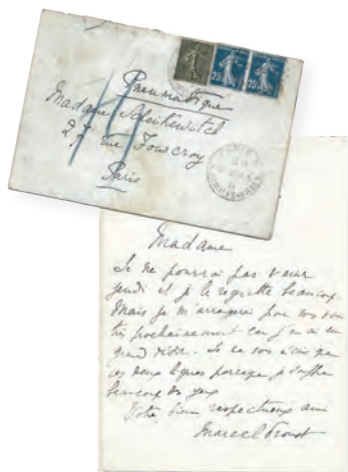 25 25
Pneumatique
Madame Scheikévitch
27 rue Fourcroy
Paris
PARIS
Madame
Je ne pourrai pas venir
jeudi et je le regrette beaucoup.
Mais je m'arrangerai pour vous voir
très prochainement car j'en ai un
grand désir. Je ne vous écris que
ces deux lignes parceque je souffre
beaucoup des yeux
Votre bien respectueux ami
Marcel Proust